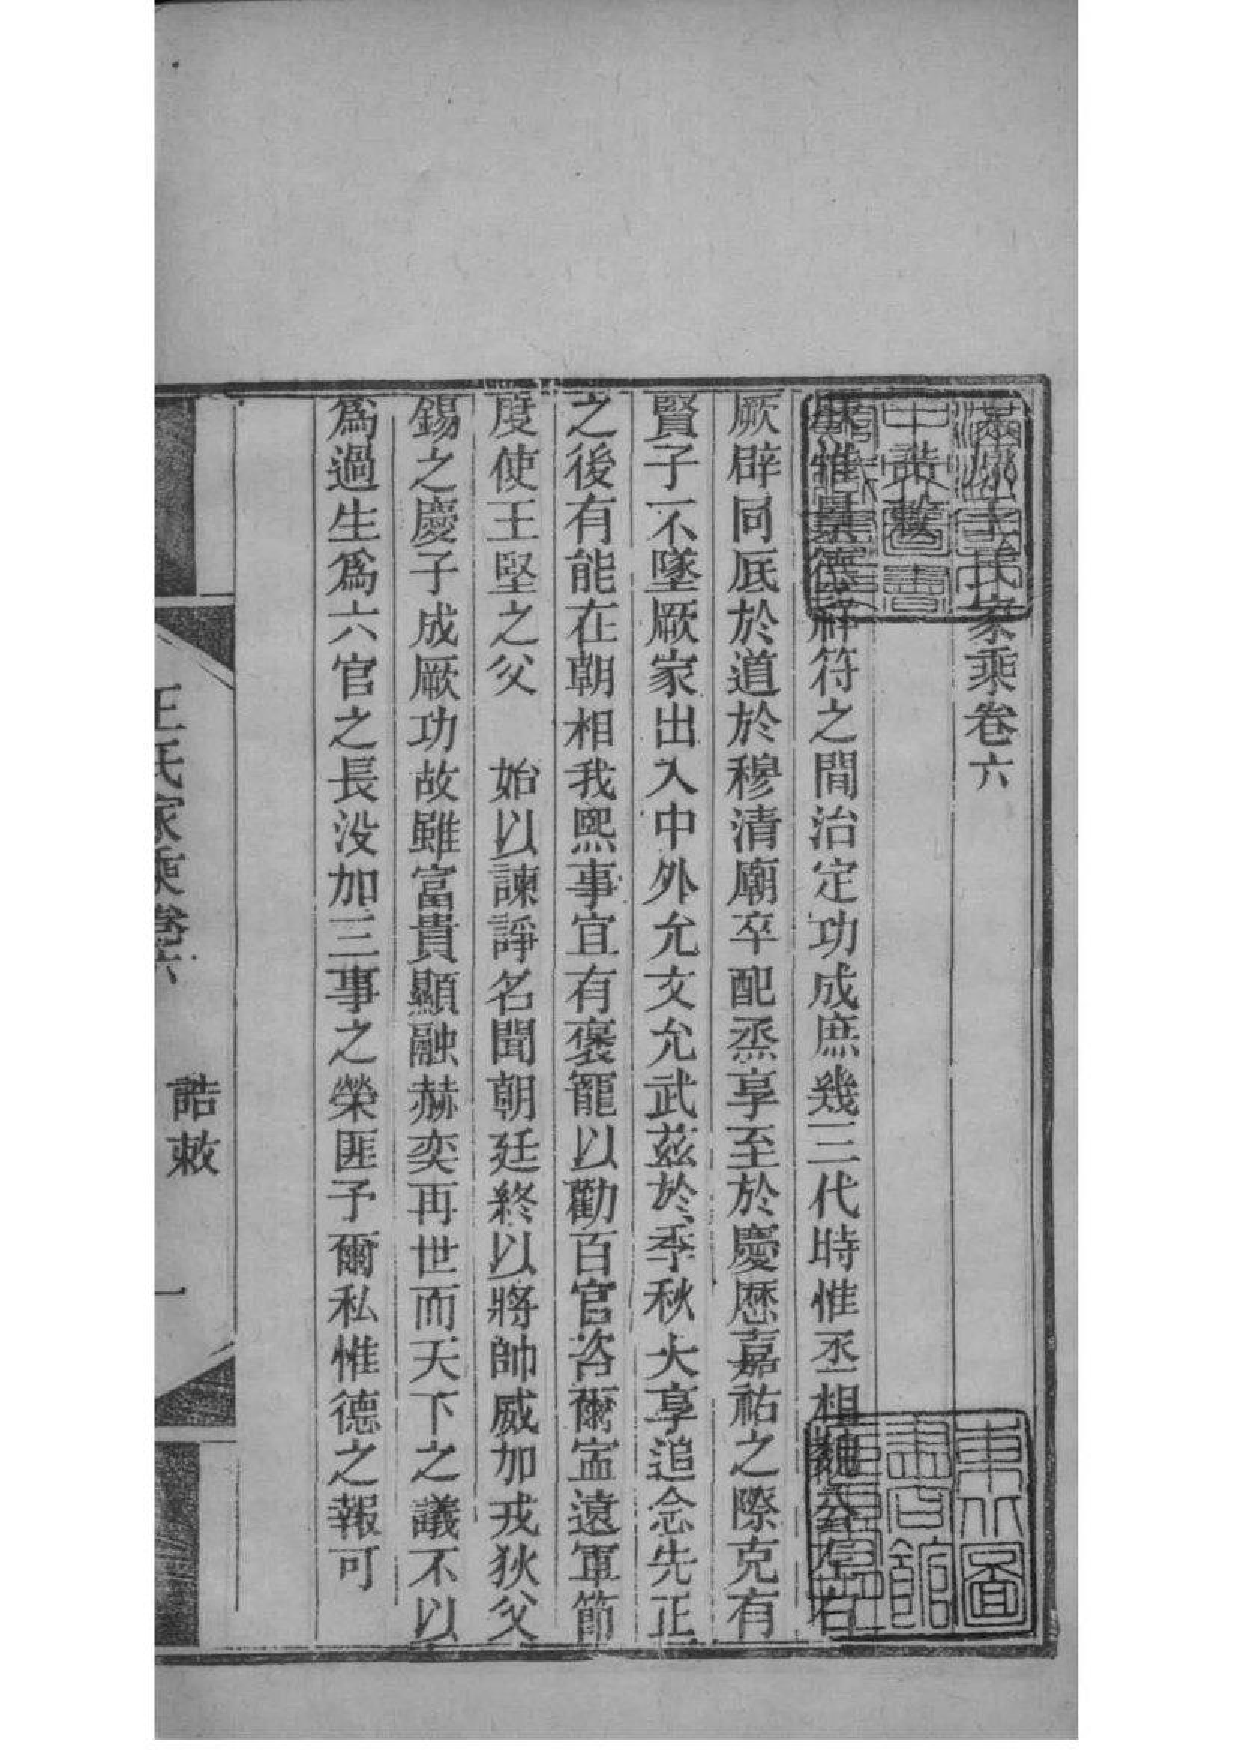 王氏家乘卷六
誥敕
惟景德祥符之間治定功成庶幾三代時惟丞相魏公左右
厥辟同底於道於穆清廟卒配烝享至於慶歷嘉祐之際克有
賢子不墜厥家出入中外允文允武茲於季秋大享追念先正
之後有能在朝相我熙事宜有褒寵以勸百官咨爾寍遠軍節
度使王堅之父　始以諫諍名聞朝廷終以將帥威加戎狄父
錫之慶子成厥功故雖富貴顯融赫奕再世而天下之議不以
爲過生爲六官之長没加三事之榮匪予爾私惟德之報可
王氏家乘卷六　誥敕　一